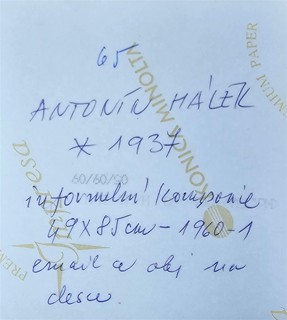 65
ANTONÍN MÁLEK
* 1937
informelní kompozice
49X85cm - 1960-1
email a olej na
desce.
KONICA MINOLTA
PREMIUM PAPER